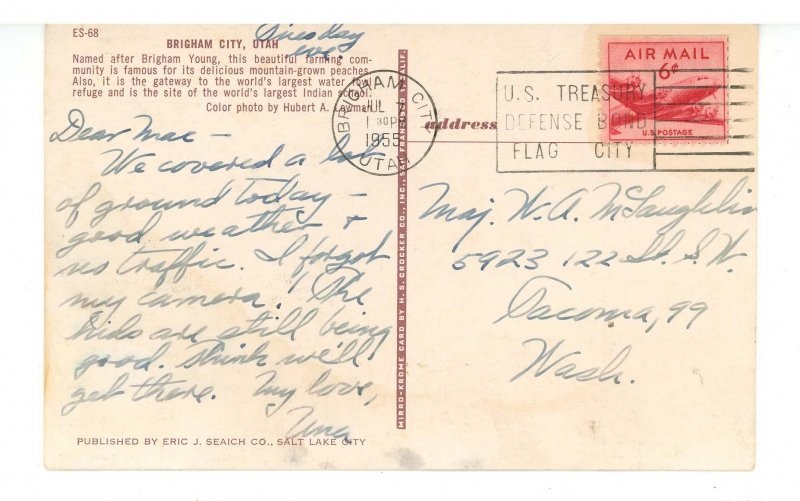 ES-68
BRIGHAM CITY, UTAH
Named after Brigham Young, this beautiful farming com-
munity is famous for its delicious mountain-grown peaches.
Also, it is the gateway to the world's largest water fowl
refuge and is the site of the world's largest Indian school.
Color photo by Hubert A. Lowman
Tuesday
eve.
Dear Mac –
We covered a lot
of ground today –
good weather &
no traffic. I forgot
my camera! The
kids are still being
good. Think we'll
get there. My love,
Una
PUBLISHED BY ERIC J. SEAICH CO., SALT LAKE CITY
MIRRO-KROME CARD BY H. S. CROCKER CO., INC., SAN FRANCISCO 1, CALIF.
address
BRIGHAM CITY
JUL
1 30PM
1955
UTAH
U.S. TREASURY
DEFENSE BOND
FLAG CITY
AIR MAIL
6¢
U.S. POSTAGE
Maj. W. A. McLaughlin
5923 122 St. S.W.
Tacoma, 99
Wash.